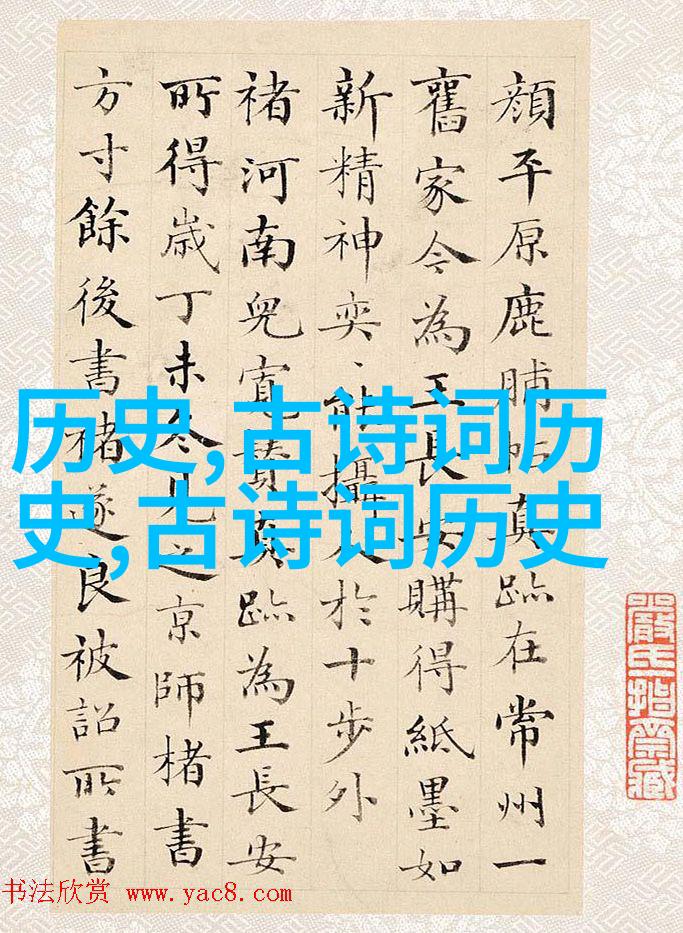 顔平原鹿脯帖真跡在常州一
舊家今為王長安購得紙墨如
新精神奕、能攝人於十步外
褚河南兒寬贊真跡為王長安
所得歲丁未冬見之京師楮書
方寸餘後書褚遂良被詔所書
历史,古诗词历
史,古诗词历史
书法欣赏 www.yac8.com